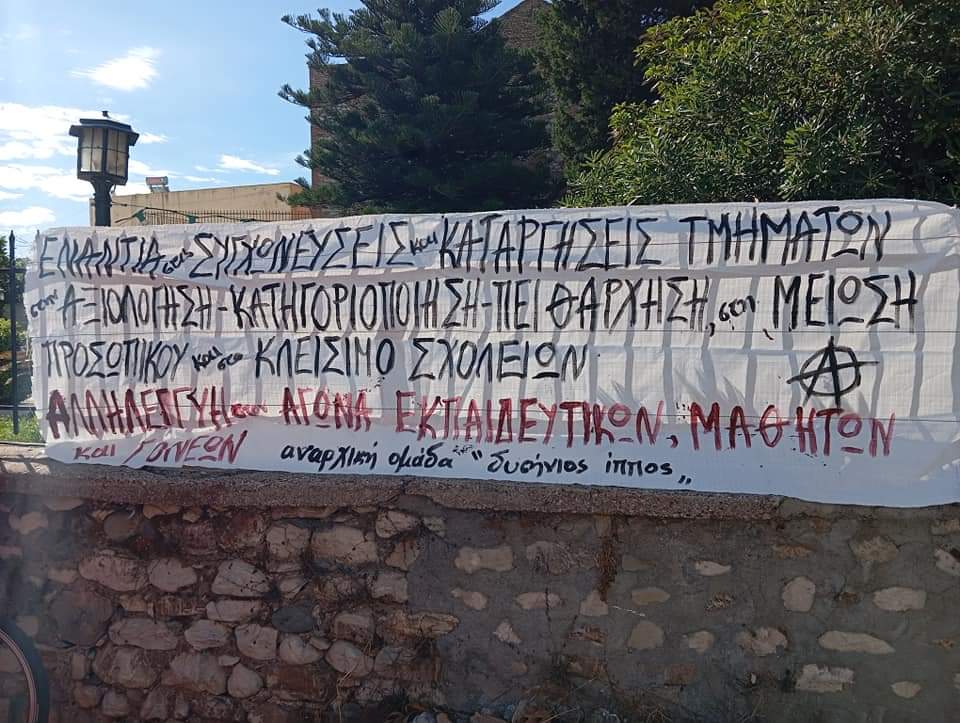 ΕΝΑΝΤΙΑ στις ΣΥΓΧΩΝΕΥΣΕΙΣ και ΚΑΤΑΡΓΗΣΕΙΣ ΤΜΗΜΑΤΩΝ
στην ΑΞΙΟΛΟΓΗΣΗ-ΚΑΤΗΓΟΡΙΟΠΟΙΗΣΗ-ΠΕΙΘΑΡΧΗΣΗ, στη ΜΕΙΩΣΗ
ΠΡΟΣΩΠΙΚΟΥ και στο ΚΛΕΙΣΙΜΟ ΣΧΟΛΕΙΩΝ
ΑΛΛΗΛΕΓΓΥΗ στον ΑΓΩΝΑ ΕΚΠΑΙΔΕΥΤΙΚΩΝ, ΜΑΘΗΤΩΝ
και ΓΟΝΕΩΝ αναρχική ομάδα "δυσήνιος ίππος"